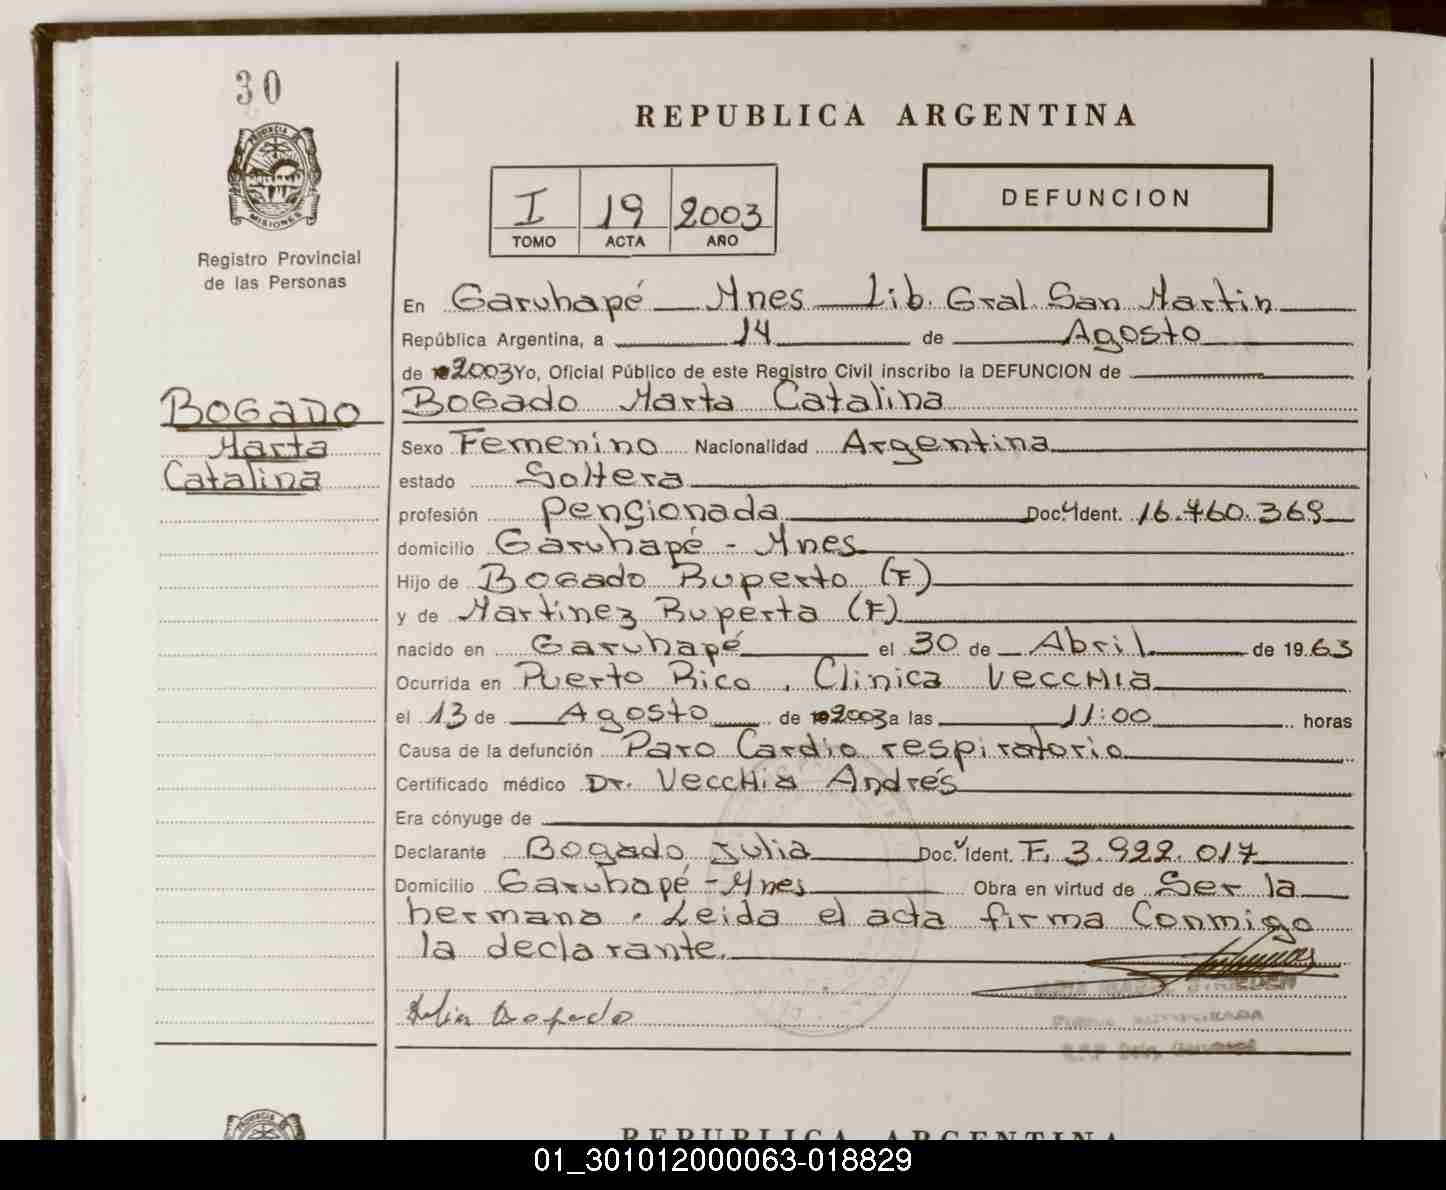 30
PROVINCIA DE
MISIONES
Registro Provincial
de las Personas
BOGADO
Marta
Catalina
REPUBLICA ARGENTINA
I 19 2003
TOMO ACTA AÑO
DEFUNCION
En Garuhapé Mnes Lib. Gral San Martin
República Argentina, a 14 de Agosto
de 2003 Yo, Oficial Público de este Registro Civil inscribo la DEFUNCION de
Bogado Marta Catalina
Sexo Femenino Nacionalidad Argentina
estado Soltera
profesión Pensionada Doc. Ident. 16.460.369
domicilio Garuhapé - Mnes
Hijo de Bogado Ruperto (F)
y de Martinez Ruperta (F)
nacido en Garuhapé el 30 de Abril de 1963
Ocurrida en Puerto Rico, Clinica VeccHia
el 13 de Agosto de 2003 a las 11:00 horas
Causa de la defunción Paro Cardio respiratorio
Certificado médico Dr. VeccHia Andrés
Era cónyuge de
Declarante Bogado, Julia Doc. Ident. F. 3.922.017
Domicilio Garuhapé - Mnes Obra en virtud de Ser la
hermana. Leida el acta firma Conmigo
la declarante.
Julia Bogado
REPUBLICA ARGENTINA
01_301012000063-018829